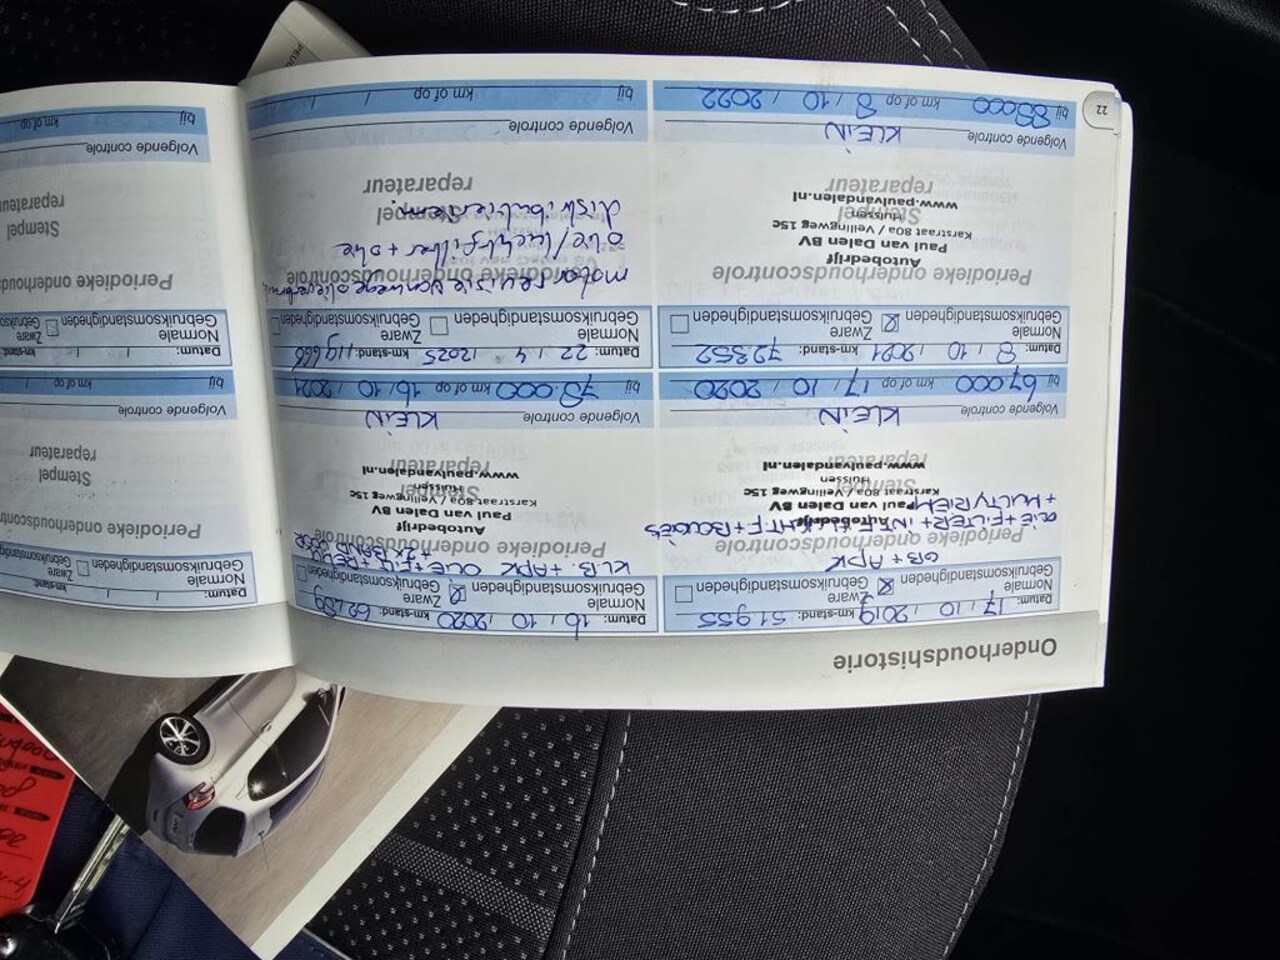 Onderhoudshistorie
Datum: 17 / 10 / 2019 km-stand: 51955
Normale Gebruiksomstandigheden Zware Gebruiksomstandigheden
GB + APK
Periodieke onderhoudscontrole
OLIE + FILTER + INT + LUCHTF + BOUGIES
+ MULTYRIEM
Autobedrijf
Paul van Dalen BV
Karstraat 80a / Veilingweg 15c
Huissen
www.paulvandalen.nl
Stempel
reparateur
Volgende controle KLEIN
bij 67.000 km of op 17 / 10 / 2020
Datum: 16 / 10 / 2020 km-stand:
Normale Gebruiksomstandigheden Zware Gebruiksomstandigheden
KLB. + APK OLIE + FILT +
+ 2x BAND
Periodieke onderhoudscontrole
Autobedrijf
Paul van Dalen BV
Karstraat 80a / Veilingweg 15c
Huissen
www.paulvandalen.nl
Stempel
reparateur
Volgende controle KLEIN
bij 78.000 km of op 16 / 10 / 2021
Datum: 8 / 10 / 2021 km-stand: 72352
Normale Gebruiksomstandigheden Zware Gebruiksomstandigheden
Periodieke onderhoudscontrole
Autobedrijf
Paul van Dalen BV
Karstraat 80a / Veilingweg 15c
Huissen
www.paulvandalen.nl
Stempel
reparateur
Volgende controle KLEIN
bij 88000 km of op 8 / 10 / 2022
22
Datum: 22 / 4 / 2025 km-stand: 119666
Normale Gebruiksomstandigheden Zware Gebruiksomstandigheden
Periodieke onderhoudscontrole
motor revisie vanwege olieverbruik
olie/luchtfilter + olie
distributieriem
Stempel
reparateur
Volgende controle
bij km of op / /
Datum: / / km-stand:
Normale Gebruiksomstandigheden Zware
Periodieke onderhoudscontrole
Stempel
reparateur
Volgende controle
bij km of op
Datum: / / km-stand:
Normale Gebruiksomstandigheden Zware
Periodieke
Stempel
reparateur
Volgende controle
bij km of op